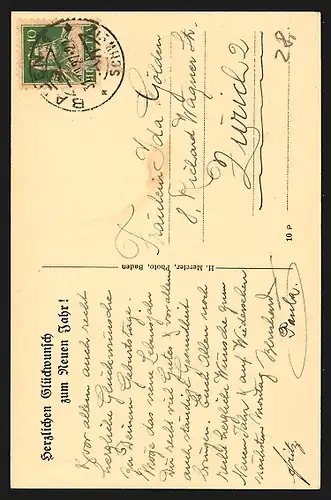 Herzlichen Glückwunsch
zum Neuen Jahr!
Zuvor allem auch recht
herzliche Glückwünsche
zu Deinem Geburtstage.
Möge das neue Lebensjahr
Dir recht viel Gutes & vor allem
auch ständige Gesundheit
bringen. Euch Allen noch
recht herzliche Wünsche zum
Neuen Jahr & auf Wiedersehen
nächsten Montag Bernhard
Paula
Fritz
H. Mercier, Photo, Baden
10 P
Fräulein Ida Golden
8, Richard Wagner Str.
Zürich 2
28,
10
HELVETIA
BADEN